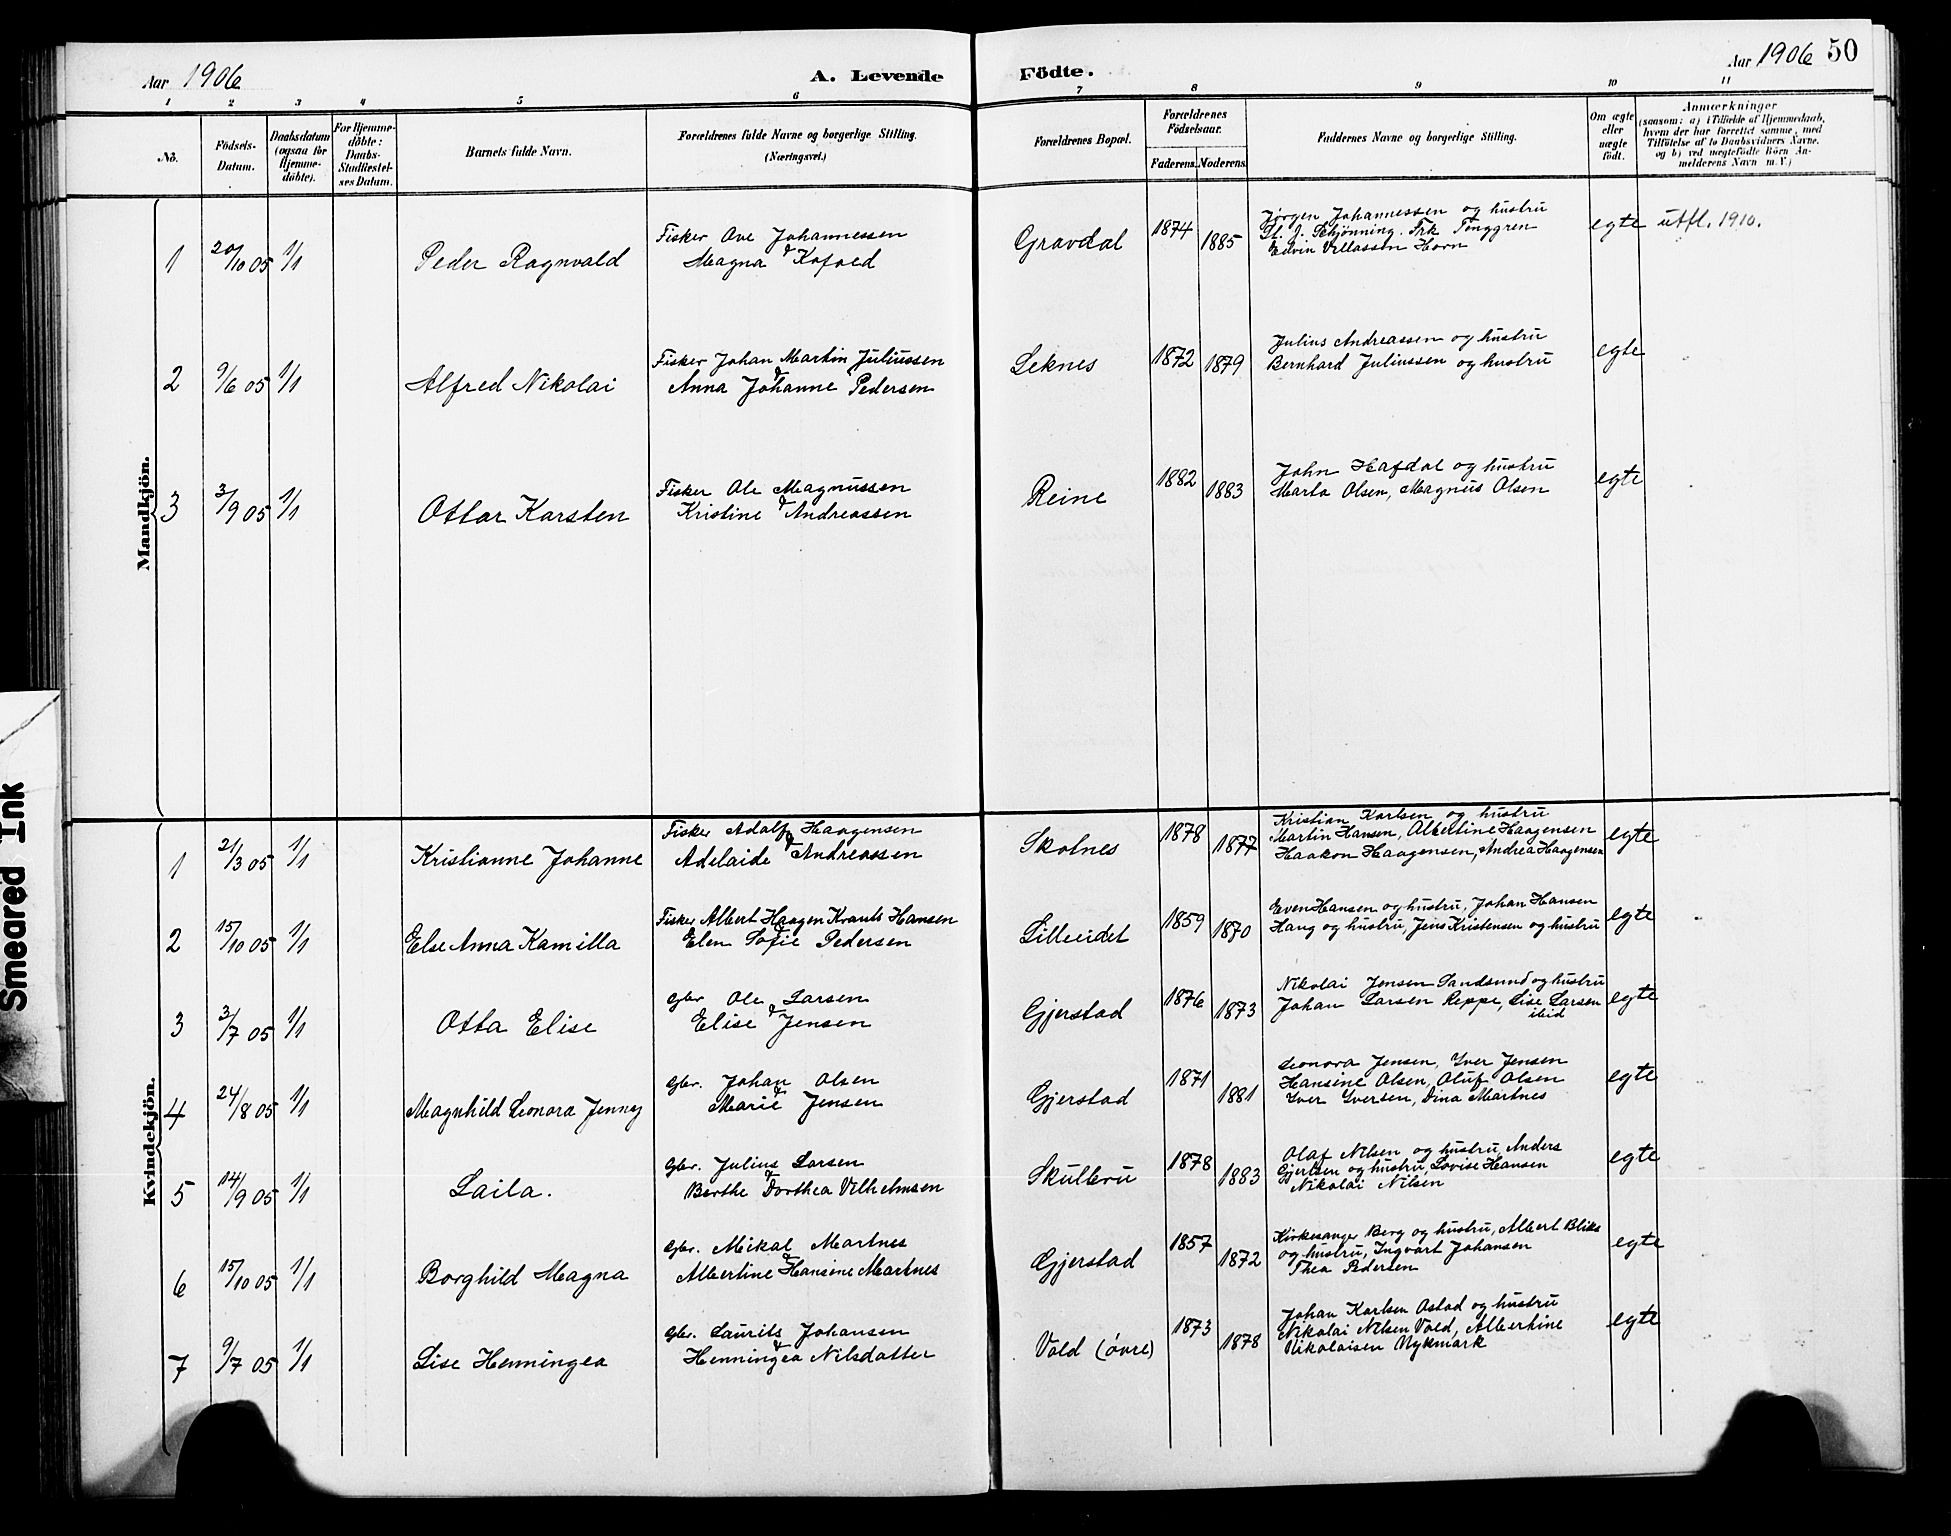 Aar 1906
A. Levende Födte.
Aar 1906 50
1 2 3 4 5 6 7 8 9 10 11
No.
Födsels-Datum.
Daabsdatum (ogsaa for Hjemme-döbte).
For Hjemme-döbte: Daabs-Stadfestel-ses Datum.
Barnets fulde Navn.
Forældrenes fulde Navne og borgerlige Stilling.
(Næringsvei.)
Forældrenes Bopæl.
Forældrenes Födselsaar.
Faderens. Moderens.
Faddernes Navne og borgerlige Stilling.
Om ægte eller uægte födt.
Anmærkninger
(saasom: a) i Tilfælde af Hjemmedaab,
hvem der har forrettet samme, med
Tilföielse af to Daabsvidners Navne.
og b) ved uægtefödte Börn An-
melderens Navn m. V.)
Mandkjön.
1 20/10 05 1/1 Peder Ragnvald
Fisker Ove Johannessen
& Magna Kofoed
Gravdal 1874 1885
Jørgen Johannessen og hustru
St. J. Schjønning. Frk Tønggren
Edvin Vellassen Horn
egte utfl. 1910.
2 9/6 05 1/1 Alfred Nikolai
Fisker Johan Martin Juliussen
& Anna Johanne Pedersen
Leknes 1872 1879
Julius Andreassen og hustru
Bernhard Juliussen og hustru
egte
3 3/9 05 1/1 Ottar Karsten
Fisker Ole Magnussen
& Kristine Andreassen
Reine 1882 1883
John Hafdal og hustru
Marta Olsen, Magnus Olsen
egte
Kvindekjön.
1 21/3 05 1/1 Kristianne Johanne
Fisker Adolf Haagensen
& Adelaide Andreassen
Skolnes 1878 1877
Kristian Karlsen og hustru
Martin Hansen, Albertine Haagensen
Haakon Haagensen, Andrea Haagensen
egte
2 15/10 05 1/1 Else Anna Kamilla
Fisker Albert Haagen Krants Hansen
& Elen Sofie Pedersen
Lilleeidet 1859 1870
Even Hansen og hustru, Johan Hansen
Haug og hustru, Jens Kristensen og hustru
egte
3 3/7 05 1/1 Otta Elise
Gbr Ole Larsen
& Elise Jensen
Gjerstad 1876 1873
Nikolai Jensen Sandsund og hustru
Johan Larsen Reppe, Lise Larsen
ibid
egte
4 24/8 05 1/1 Magnhild Leonora Jenny
Gbr. Johan Olsen
& Marie Jensen
Gjerstad 1871 1881
Leonora Jensen, Yver Jensen
Hansine Olsen, Oluf Olsen
Yver Yversen, Dina Martnes
egte
5 14/9 05 1/1 Laila.
Gbr. Julius Larsen
& Berthe Dorthea Vilhelmsen
Skulbru 1878 1883
Olaf Nilsen og hustru, Anders
Gjertsen og hustru, Lovise Hansen
Nikolai Nilsen
egte
6 15/10 05 1/1 Borghild Magna
Gbr. Mikal Martnes
& Albertine Hansine Martnes
Gjerstad 1857 1872
Kirkesanger Berg og hustru, Albert Bliks
og hustru, Ingvart Johansen
Thea Pedersen
egte
7 9/7 05 1/1 Lise Henningea
Gbr. Laurits Johansen
& Henningea Nilsdatter
Vold (övre) 1873 1878
Johan Karlsen Ostad og hustru
Nikolai Nilsen Vold, Albertine
Nikolaisen Nykmark
egte
Smeared Ink